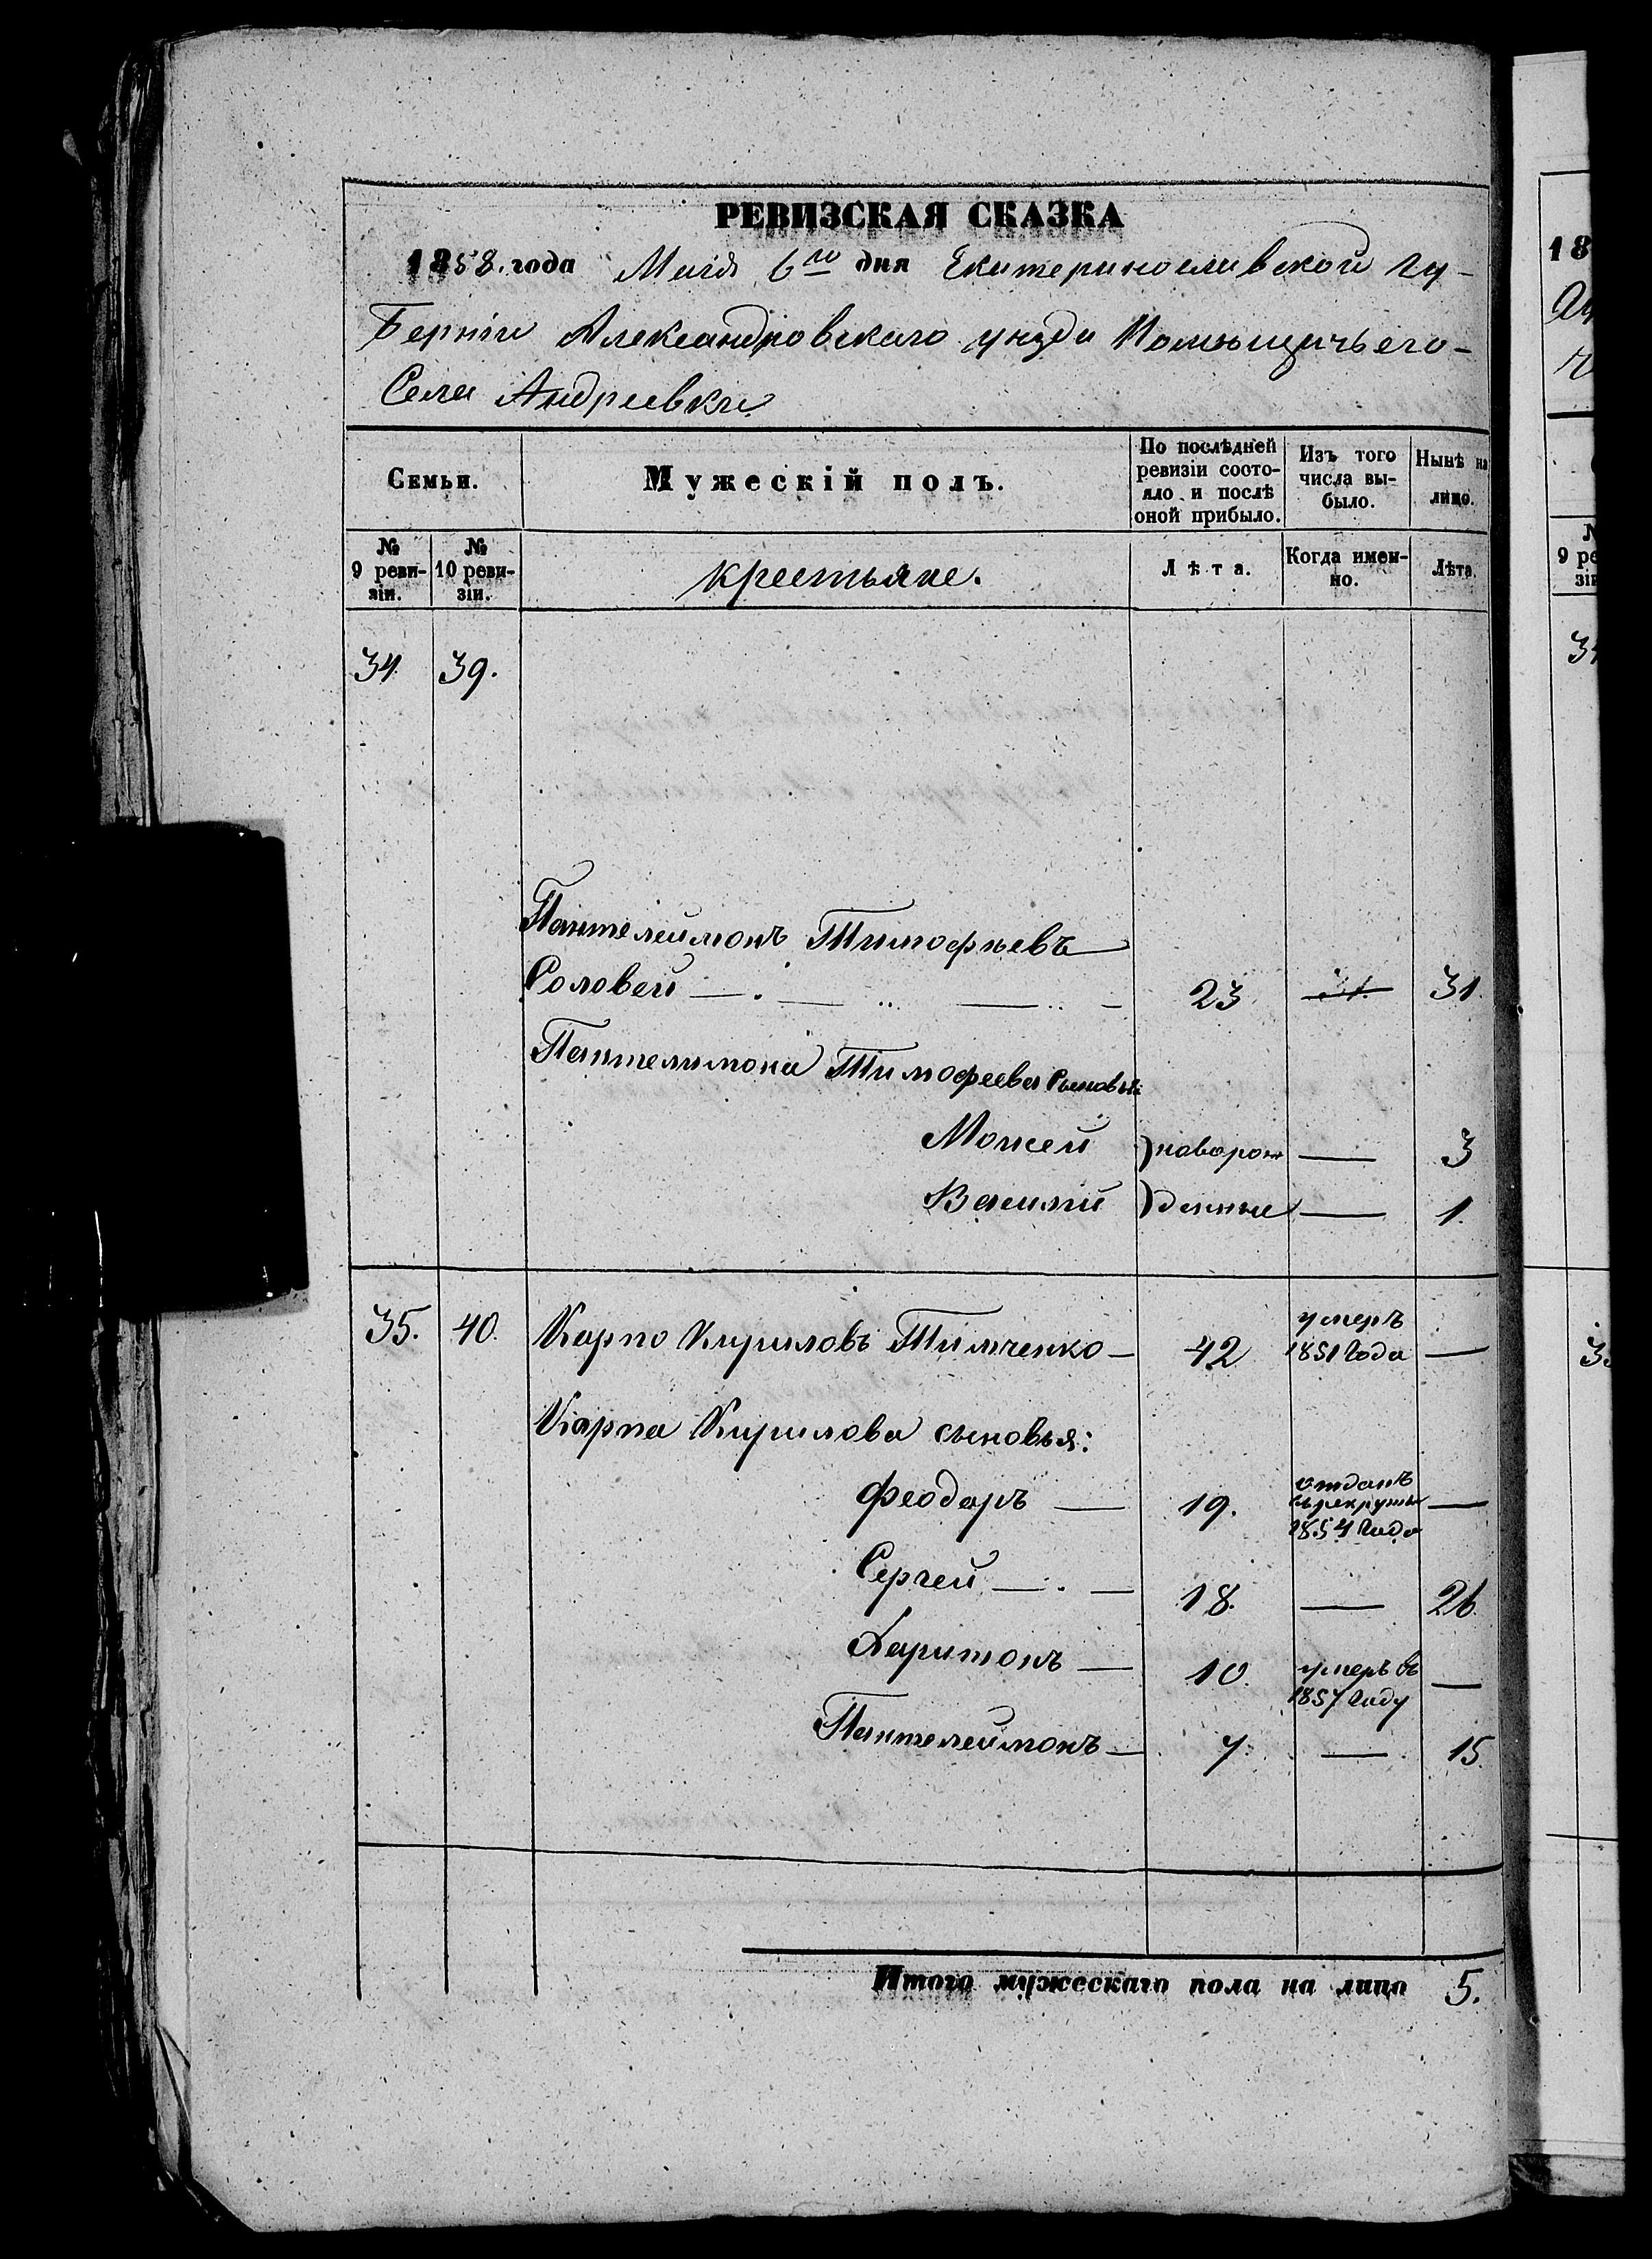 РЕВИЗСКАЯ СКАЗКА
1858. года Маія 6го дня Екатеринославской гу-
берніи Александровскаго уѣзда Помѣщичьего-
Села Андреевки
Семьи.
Мужескій полъ.
По послѣдней
ревизіи состо-
яло и послѣ
оной прибыло.
Изъ того
числа вы-
было.
Нынѣ на
лицо.
№
9 реви-
зіи.
№
10 реви-
зіи.
крестьяне.
Лѣта.
Когда имен-
но.
Лѣта.
34 39.
Пантелеймонъ Тимофѣевъ
Соловей 23 31. 31.
Пантелимона Тимофеева сыновья:
Мойсей новорож 3
Василий денные 1.
35. 40. Карпо Кириловъ Тимченко 42 умеръ
1851 года
Карпа Кирилова сыновья:
Феодоръ 19. отданъ
въ рекруты
1854 года
Сергей 18. 26.
Харитонъ 10. умеръ въ
1857 году
Пантелеймонъ 7. 15.
Итого мужескаго пола на лицо 5.
18
№
9 ре
зіи